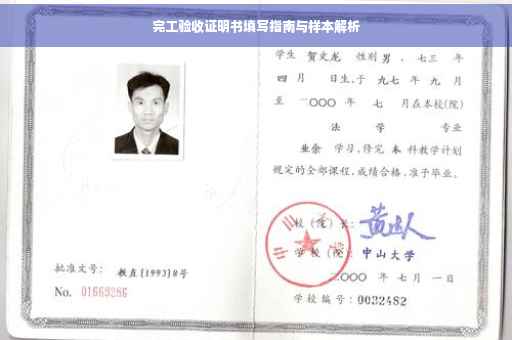 完工验收证明书填写指南与样本解析
学生 贺文龙 性别 男 、七三 年
四 月 日生,于 九七 年 九 月
至 二〇〇〇 年 七 月在本校(院)
法 学 专业
业余 学习,修完 本 科教学计划
规定的全部课程,成绩合格,准予毕业。
校(院)长:
学校(院): 中山大学
二〇〇〇 年 七 月 一 日
学校编号: 0032482
批准文号: 教直[1993]8号
No. 01669286